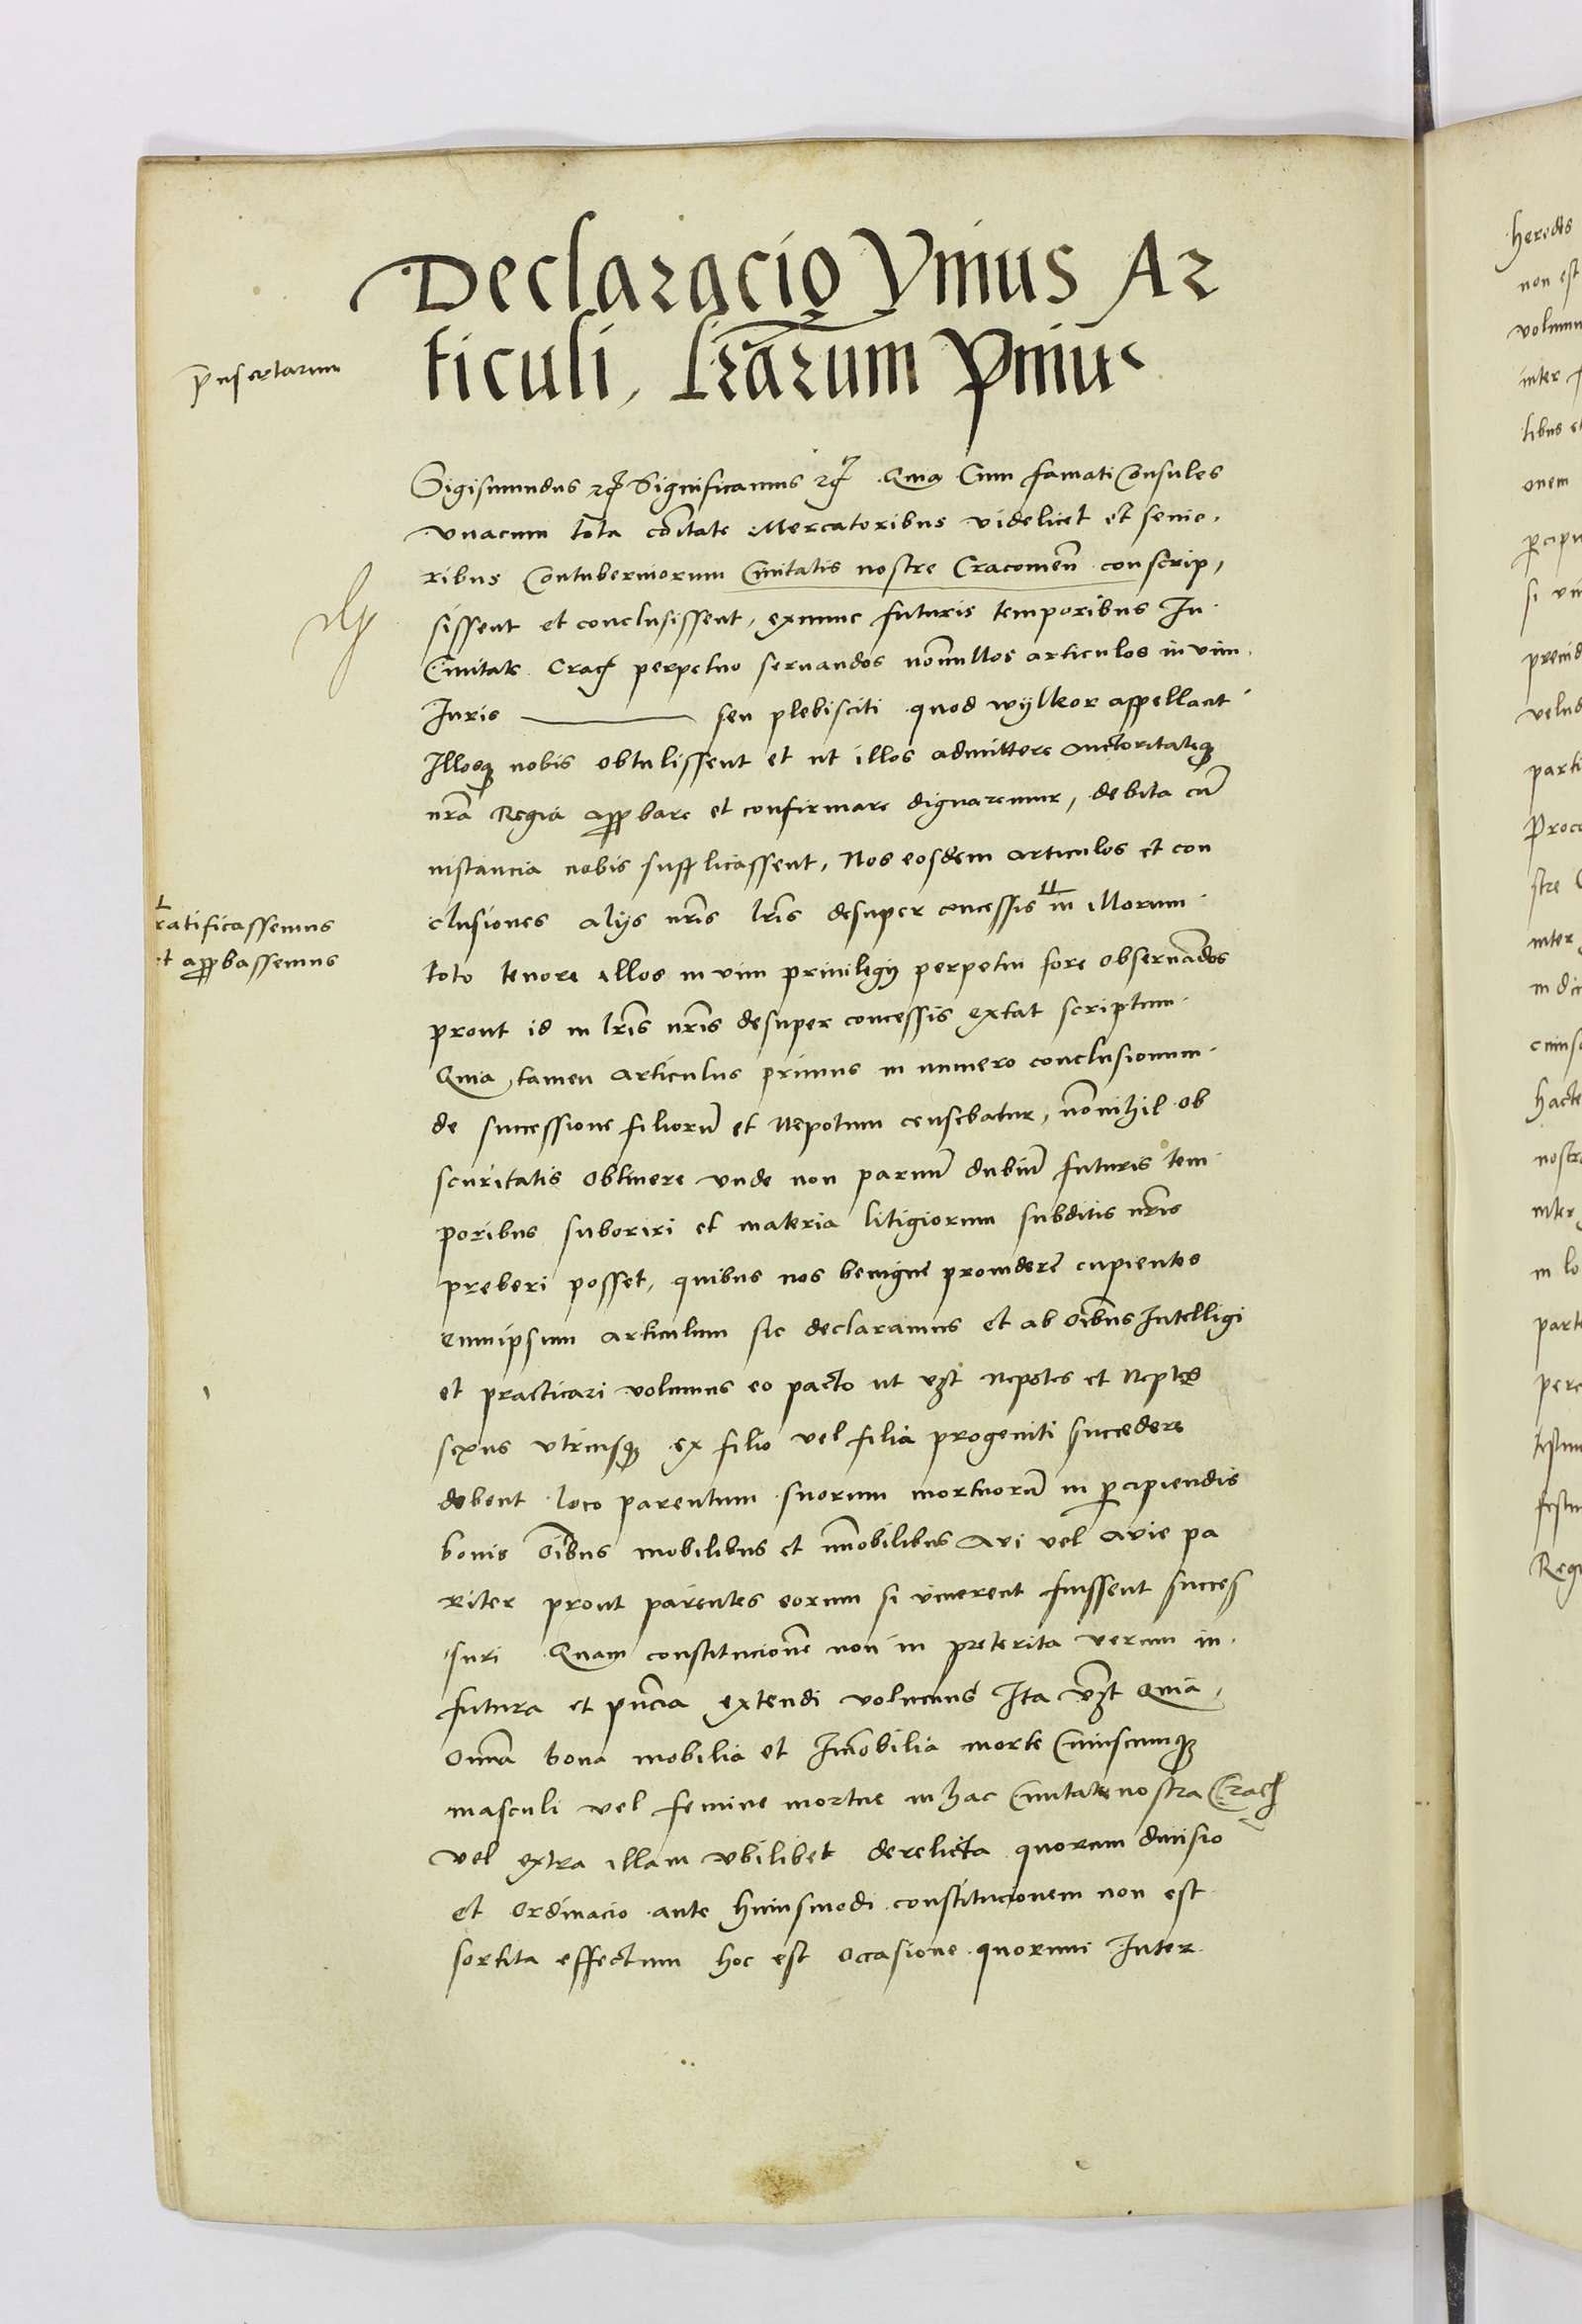 Declaracio Vnius Ar
ticuli, lr̃arum Pmiu
p̃nsertarum
Sigismundus rc̃ Significamus rc̃ Quia Cum famati Consules
vnacum tota cõitate Mercatoribus videlicet et senio,
ribus Contuberniorum Ciuitatis nostre Cracouieñ conscrip,
sissent et conclusissent, exnunc futuris temporibus In
Ciuitate Crac̃ perpetuo seruandos nonnullos articulos in vim
Iuris ——— seu plebisciti quod wylkor appellant
Illosq̃ nobis obtulissent et ut illos admittere auctoritateq̃
nr̃a Regia app̃bare et confirmare dignaremur, debita cũ
instancia nobis supplicassent, Nos eosdem articulos et con
clusiones alijs nr̃is lr̃is desuper concessis in illorum
ratificassemus
et app̃bassemus
toto tenore illos in vim priuilegij perpetui fore obseruãdos
prout id in lr̃is nr̃is desuper concessis extat scriptum
Quia tamen articulus primus in numero conclusionum
de successione filiorũ et Nepotum censebatur, nõnihil ob
scuritatis obtinere vnde non paruũ dubiũ futuris tem
poribus suboriri et materia litigiorum subditis nr̃is
preberi posset, quibus nos benigne prouidere cupientes
eumipsum articulum sic declaramus et ab oĩbus Intelligi
et practicari volumus eo pacto ut vz̃t Nepotes et Neptes
sexus vtriusq̃ ex filio vel filia progeniti succedere
debent loco parentum suorum mortuorũ in p̃cipiendis
bonis oĩbus mobilibus et ĩmobilibus Aui vel Auie pa
riter prout parentes eorum si viuerent fuissent succes
suri Quam constitucionẽ non in preterita verum in
futura et p̃ncia extendi volumus Ita vz̃t Quia
Om̃a bona mobilia et Im̃obilia morte Cuiuscumq̃
masculi vel femine mortue in hac Ciuitate nostra Crac̃
vel extra illam vbilibet derelicta quorum diuisio
et Ordinacio ante huiusmodi constitucionem non est
sortita effectum hoc est occasione quorum Inter